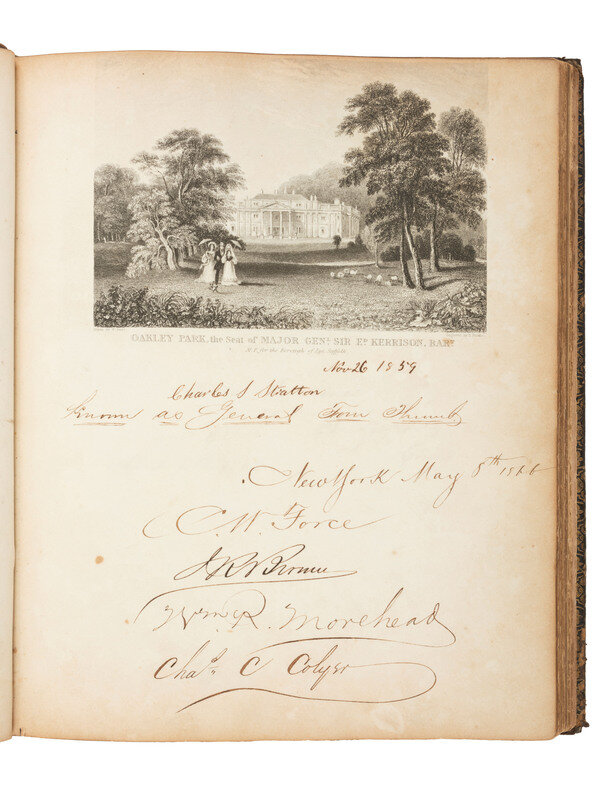 OAKLEY PARK, the Seat of MAJOR GENL. SIR ED. KERRISON, BART.
M.P. for the Borough of Eye Suffolk
Nov 26 1859
Charles S Stratton
Known as General Tom Thumb
New York May 8th
C. W. Force
Wm. R. Morehead
Chas. C Colyer